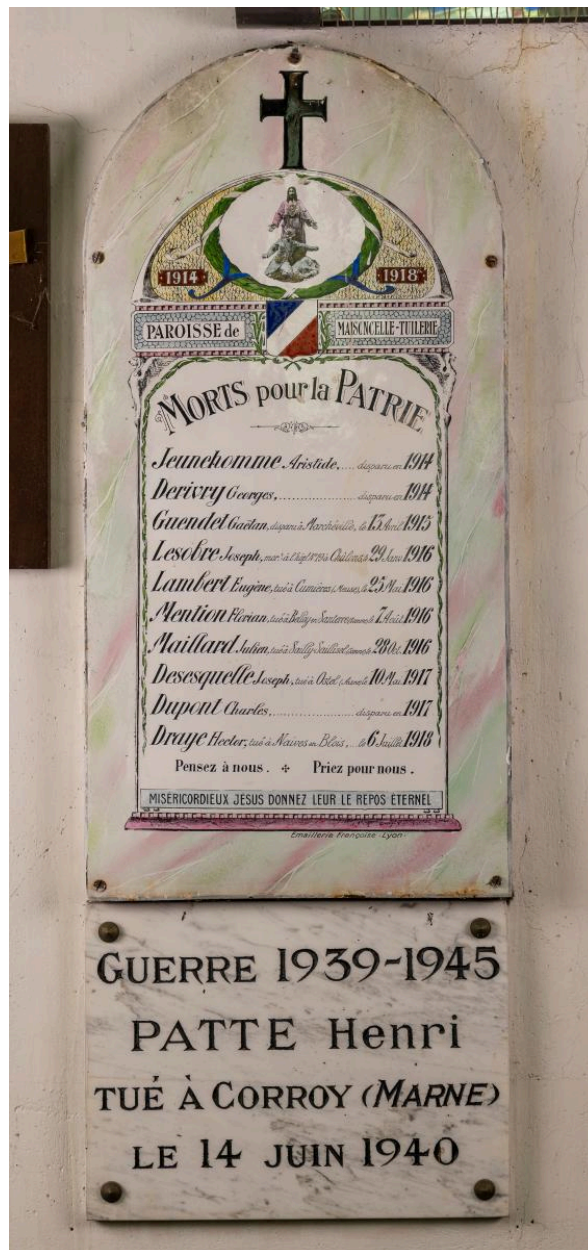 1914 1918
PAROISSE de MAISONCELLE-TUILERIE
MORTS pour la PATRIE
Jeunehomme Aristide, ..... disparu en 1914
Derivry Georges, ..................... disparu en 1914
Guendet Gaëtan, disparu à Marchéville, le 13 Avril 1915
Lesobre Joseph, à Châlons, 29 Janv 1916
Lambert Eugène, tué à Cumières (Meuse), le 25 Mai 1916
Mention Florian, tué à Belloy en Santerre le 7 Août 1916
Maillard Julien, tué à Sailly Saillisel le 28 Oct. 1916
Desesquelle Joseph, tué à Ostel (Aisne) le 10 Mai 1917
Dupont Charles, ..................... disparu en 1917
Draye Hector, tué à Naives en Blois, .. le 6 Juillet 1918
Pensez à nous. ✣ Priez pour nous.
MISÉRICORDIEUX JESUS DONNEZ LEUR LE REPOS ÉTERNEL
Emaillerie Française - Lyon -
GUERRE 1939-1945
PATTE Henri
TUÉ À CORROY (MARNE)
LE 14 JUIN 1940